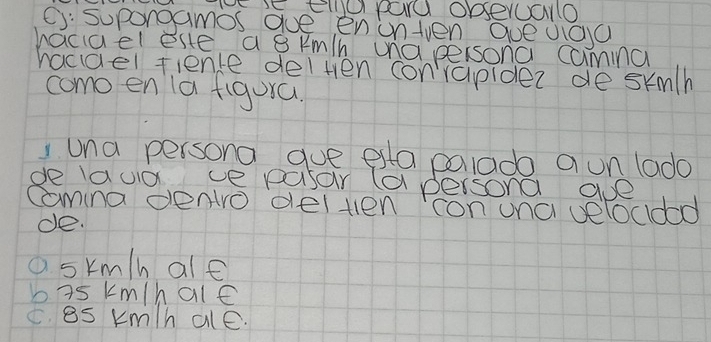 se para observarlo
ej: supongamos que en un tren que viaja
hacia el este a 8 km/h una persona camina
hacia el frente del tren con rapidez de 5km/h
como en la figura.
una persona que esta parado a un lado
de la via ve pasar la persona que
camina dentro del tren con una velocidad
de.
a 5 km/h al E
b 75 km/h al E
c. 85 km/h al E.